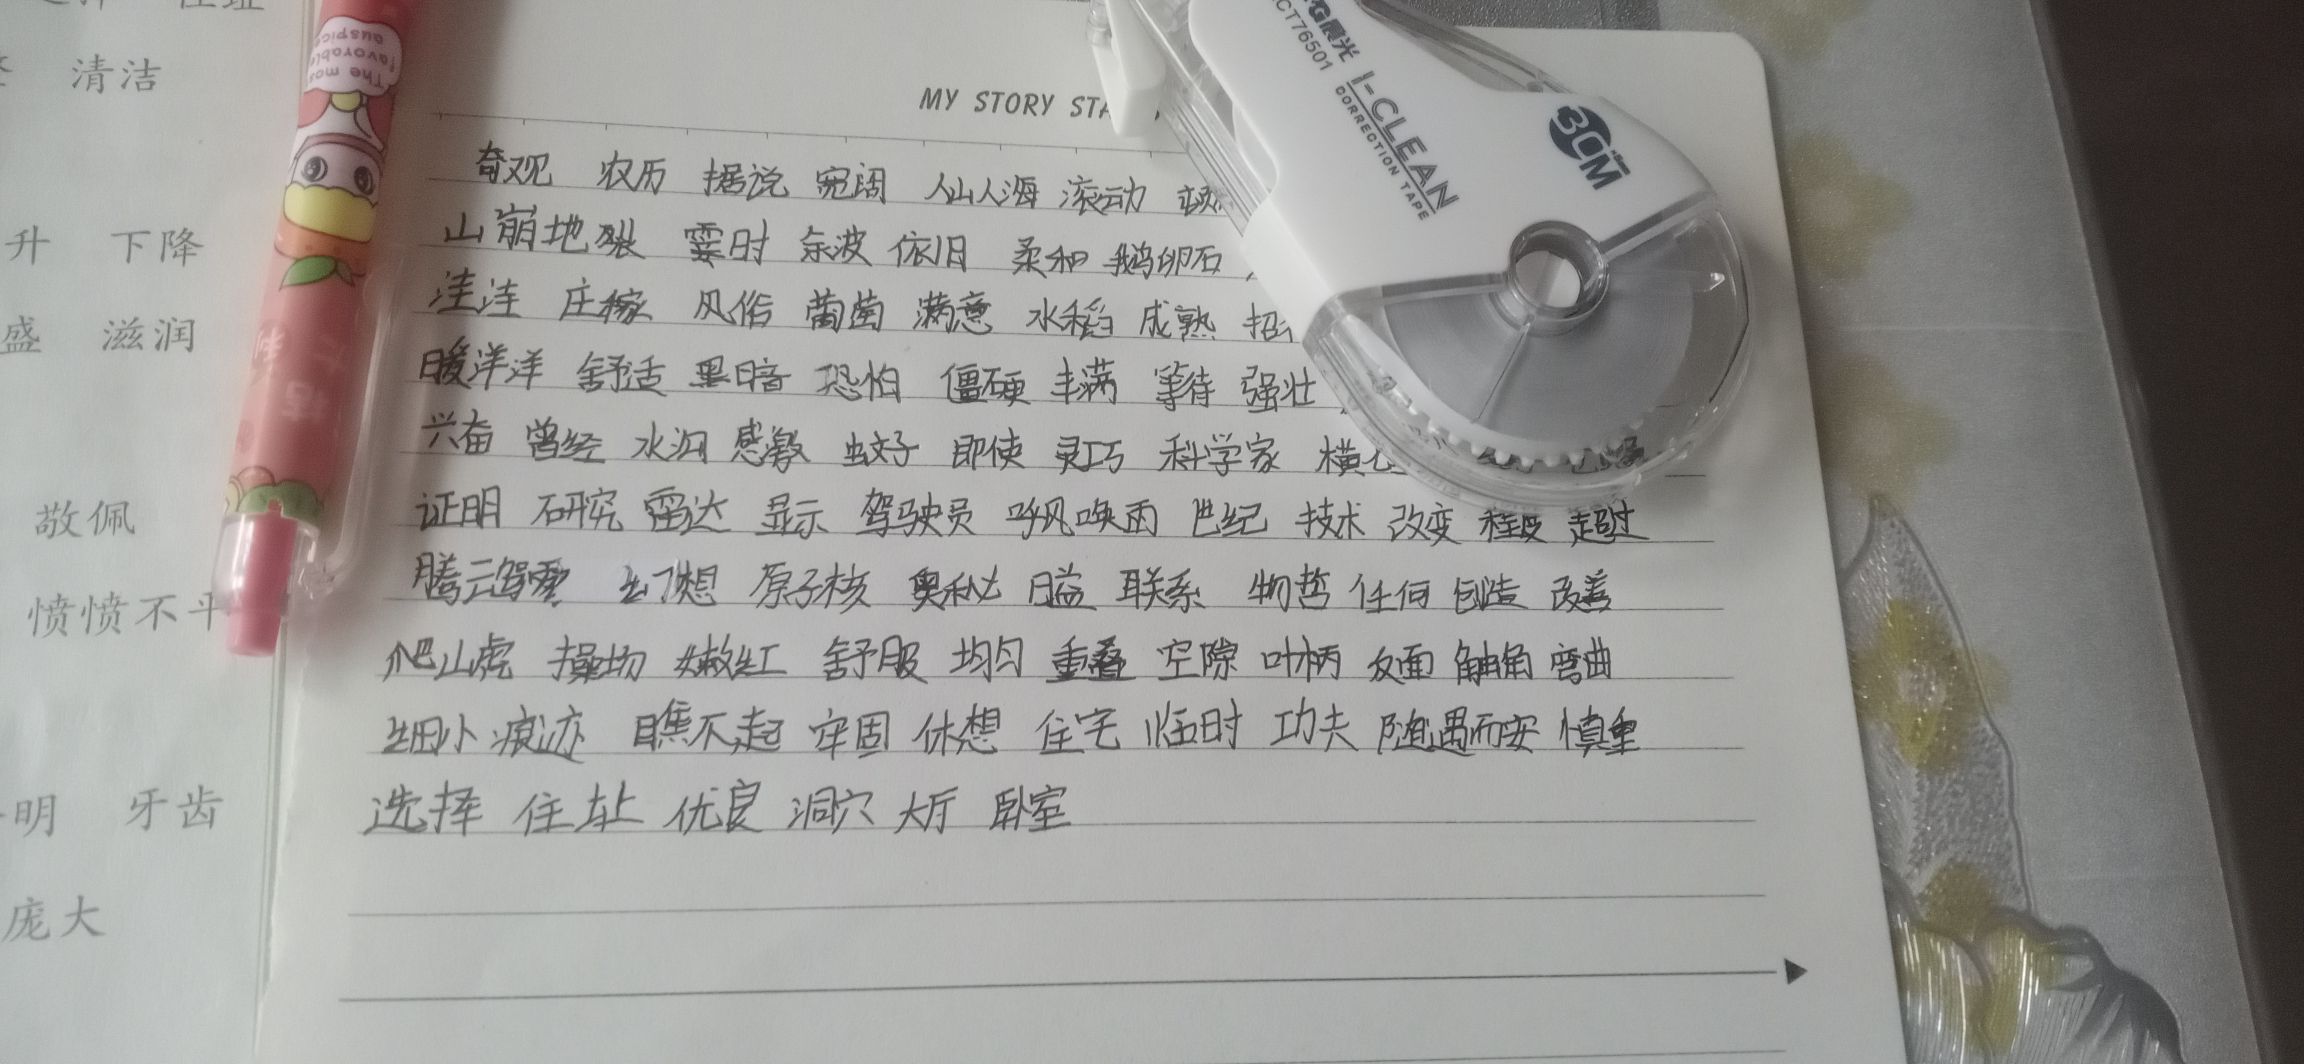 清洁
升 下降
盛 滋润
敬佩
愤愤不平
明 牙齿
庞大
The most favorable auspice
MY STORY
晨光
CT76501
I-CLEAN
CORRECTION TAPE
30M
奇观 农历 据说 宽阔 人山人海 滚动 顿
山崩地裂 霎时 余波 依旧 柔和 鹅卵石
洼洼 庄稼 风俗 葡萄 满意 水稻 成熟 招
暖洋洋 舒适 黑暗 恐怕 僵硬 丰满 等待 强壮
兴奋 曾经 水沟 感激 蚊子 即使 灵巧 科学家 横七
证明 研究 雷达 显示 驾驶员 呼风唤雨 世纪 技术 改变 程度 超过
腾云驾雾 幻想 原子核 奥秘 日益 联系 物哲 任何 创造 改善
爬山虎 操场 嫩红 舒服 均匀 重叠 空隙 叶柄 反面 触角 弯曲
细小 痕迹 瞧不起 牢固 休想 住宅 临时 功夫 随遇而安 慎重
选择 住址 优良 洞穴 大厅 卧室